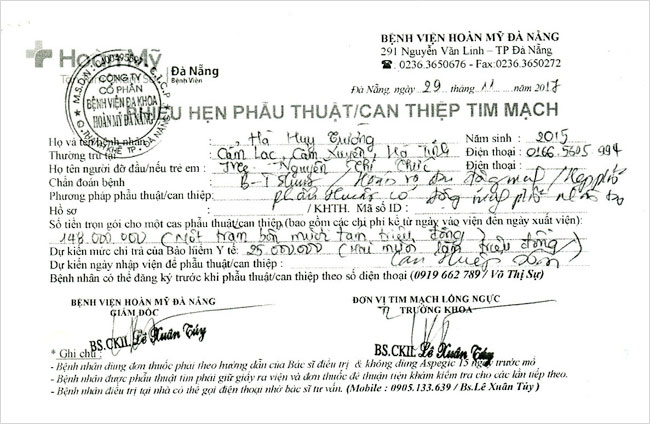 Hoàn Mỹ
Đà Nẵng
Bệnh Viện
BỆNH VIỆN HOÀN MỸ ĐÀ NẴNG
291 Nguyễn Văn Linh – TP Đà Nẵng
☎: 0236.3650676 - Fax:0236.3650272
M.S.D.N: 0400495597 - C.T.C.P
CÔNG TY
CỔ PHẦN
BỆNH VIỆN ĐA KHOA
HOÀN MỸ ĐÀ NẴNG
Q. THANH KHÊ TP. ĐÀ NẴNG
Đà Nẵng, ngày 29 tháng 11 năm 2017
PHIẾU HẸN PHẪU THUẬT/CAN THIỆP TIM MẠCH
Họ và tên bệnh nhân: Hà Huy Tường Năm sinh : 2015
Thường trú tại: Cẩm Lạc, Cẩm Xuyên, Hà Tĩnh Điện thoại : 0166 5605 994
Họ tên người đỡ đầu/nếu trẻ em : Nguyễn Thị Điện thoại :
Chẩn đoán bệnh : động mạch / Hẹp phổi
Phương pháp phẫu thuật/can thiệp: phẫu thuật có động mạch phổi nhân tạo
Hồ sơ : / KHTH. Mã số ID :
Số tiền trọn gói cho một cas phẫu thuật/can thiệp (bao gồm các chi phí kể từ ngày vào viện đến ngày xuất viện):
148.000.000 (Một trăm bốn mươi tám triệu đồng)
Dự kiến mức chi trả của Bảo hiểm Y tế: 25.000.000 (Hai mươi lăm triệu đồng)
Dự kiến ngày nhập viện để phẫu thuật/can thiệp :
Bệnh nhân có thể đăng ký trước khi phẫu thuật/can thiệp theo số điện thoại (0919 662 789/ Võ Thị Sự)
BỆNH VIỆN HOÀN MỸ ĐÀ NẴNG
GIÁM ĐỐC
BS.CKII. Lê Xuân Túy
ĐƠN VỊ TIM MẠCH LỒNG NGỰC
TRƯỞNG KHOA
BS.CKII. Lê Xuân Túy
* Ghi chú :
- Bệnh nhân dùng đơn thuốc phải theo hướng dẫn của Bác sĩ điều trị & không dùng Aspegic 15 ngày trước mổ
- Bệnh nhân được phẫu thuật tim phải giữ giấy ra viện và đơn thuốc để thuận tiện khám kiểm tra cho các lần tiếp theo.
- Bệnh nhân điều trị tại nhà có thể gọi điện thoại nhờ bác sĩ tư vấn. (Mobile : 0905.133.639 / Bs.Lê Xuân Túy )